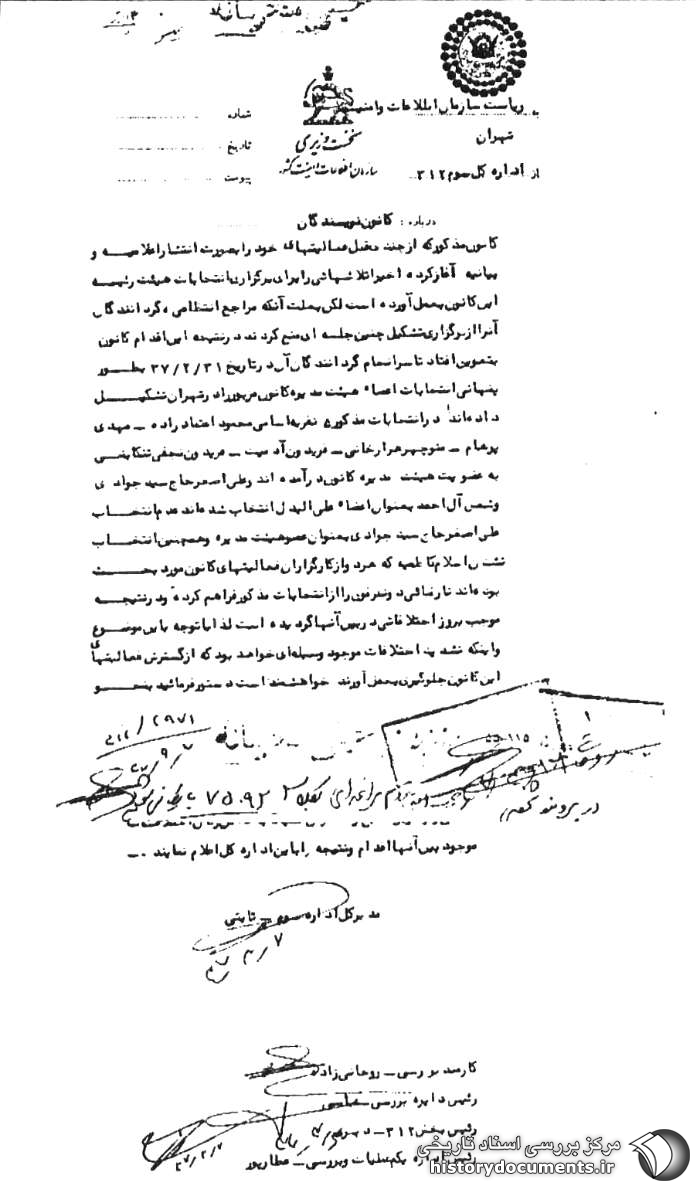 ریاست سازمان اطلاعات و امنیت
تهران
از اداره کل سوم ۳۱۲
نخست وزیری
سازمان اطلاعات و امنیت کشور
شماره
تاریخ
پیوست
درباره : کانون نویسندگان
کانون مذکور که از چند مقبل فعالیتهای خود را بصورت انتشار اعلامیه و
بیانیه آغاز کرده اخیرا تلاشهائی را برای برگزاری انتخابات هیئت رئیسه
این کانون بعمل آورده است لکن بعلت آنکه مراجع انتظامی گردانندگان
آنرا از برگزاری تشکیل چنین جلسه ای منع کردند در نتیجه این اقدام کانون
بتعویق افتاد تا سرانجام گردانندگان آن در تاریخ ۳۷/۲/۳۱ بطور
پنهانی انتخابات اعضاء هیئت مدیره کانون مزبور را در تهران تشکیل
داده‌اند در انتخابات مذکور ۵ نفر به اسامی محمود اعتماد زاده – مهدی
پرهام – منوچهر هزارخانی – فریدون آدمیت – فریدون تنکابنی
به عضویت هیئت مدیره کانون در آمده اند و علی اصغر حاج سید جوادی
و شمس آل احمد بعنوان اعضاء علی البدل انتخاب شده اند عدم انتخاب
علی اصغر حاج سید جوادی بعنوان عضو هیئت مدیره و همچنین انتخاب
نشدن اسلام کاظمیه که هر دو از کارگزاران فعالیتهای کانون مورد بحث
بوده‌اند نارضائی دو نفر فوق را از انتخابات مذکور فراهم کرده و در نتیجه
موجب بروز اختلافاتی در بین آنها گردیده است لذا با توجه باین موضوع
و اینکه تشدید اختلافات موجود وسیله‌ای خواهد بود که از گسترش فعالیتهای
این کانون جلوگیری بعمل آورند خواهشمند است دستور فرمائید بنحو
۳۱۲/۲۹۷۱
در پرونده
موجود بین آنها اقدام و نتیجه را باین اداره کل اعلام نمایند .–
مدیر کل اداره سوم – ثابتی
۳۷/۳/۷
کارمند بررسی – روحانی زاده
رئیس دایره بررسی
رئیس بخش ۳۱۲ –
رئیس اداره یکم عملیات و بررسی – عطارپور
۳۷/۳/۷
مرکز بررسی اسناد تاریخی
historydocuments.ir